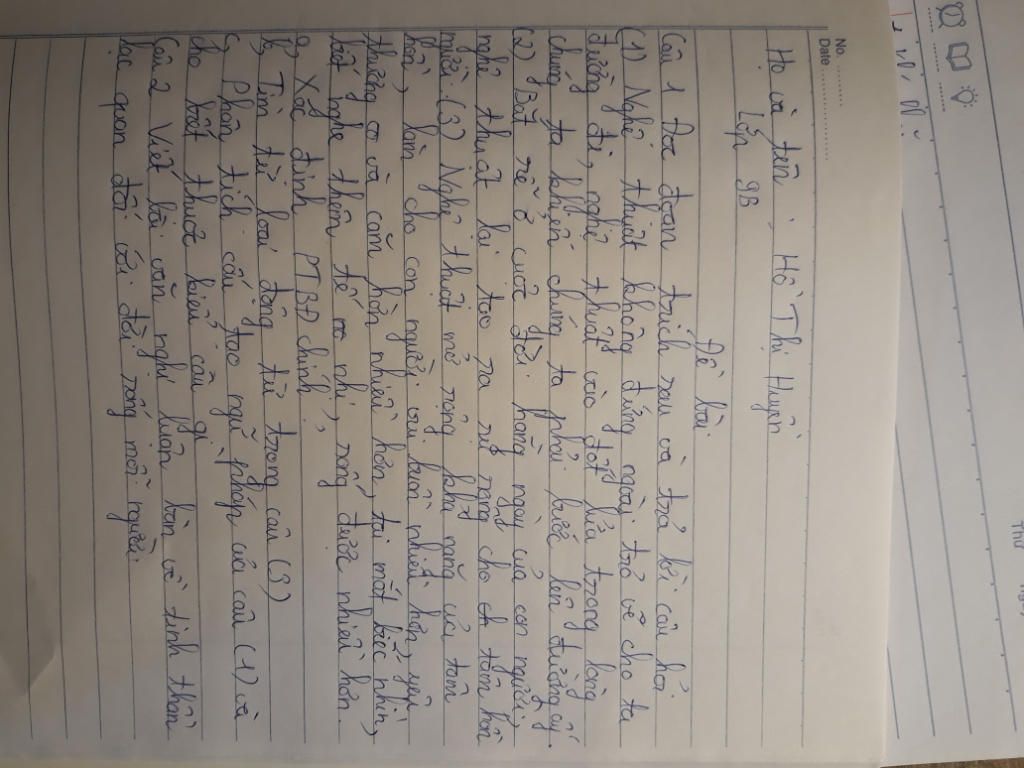 No. ............
Date ......................
Họ và tên : Hồ Thị Huyền
Lớp 9B
Đề bài.
Câu 1 Đọc đoạn trích sau và trả lời câu hỏi
(1) Nghệ thuật không đứng ngoài trỏ vẽ cho ta
đường đi, nghệ thuật vào đốt lửa trong lòng
chúng ta khiến chúng ta phải bước lên đường ấy.
(2) Bắt rễ ở cuộc đời hằng ngày của con người,
nghệ thuật lại tạo ra sự sống cho ch tâm hồn
người. (3) Nghệ thuật mở rộng khả năng của tâm
hồn, làm cho con người vui buồn nhiều hơn, yêu
thương và căm hờn nhiều hơn, tai mắt biết nhìn,
biết nghe thêm tế vi nhị, sống được nhiều hơn.
a, Xác định PTBĐ chính,
b, Tìm từ loại động từ trong câu (3)
c, Phân tích cấu tạo ngữ pháp của câu (1) và
cho biết thuộc kiểu câu gì
Câu 2 Viết bài văn nghị luận bàn về tinh thần
lạc quan đối với đời sống mỗi người.
Thứ